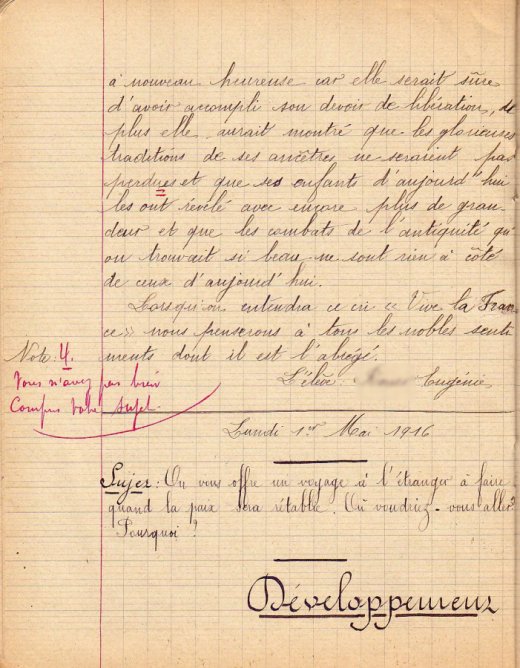 à nouveau heureuse car elle serait sûre
d'avoir accompli son devoir de libération, de
plus elle aurait montré que les glorieuses
traditions de ses ancêtres ne seraient pas
perdues et que ses enfants d'aujourd'hui
les ont révélé avec encore plus de gran-
deur et que les combats de l'antiquité qu'
on trouvait si beau ne sont rien à côté
de ceux d'aujourd'hui.
Lorsqu'on entendra ce cri « Vive la Fran-
ce » nous penserons à tous les nobles senti-
ments dont il est l'abrégé.
Note: 4.
Vous n'avez pas bien
Compris votre sujet
L'élève: Eugénie
Lundi 1er Mai 1916
Sujet: On vous offre un voyage à l'étranger à faire
quand la paix sera rétablie. Où voudriez-vous aller?
Pourquoi?
Développement